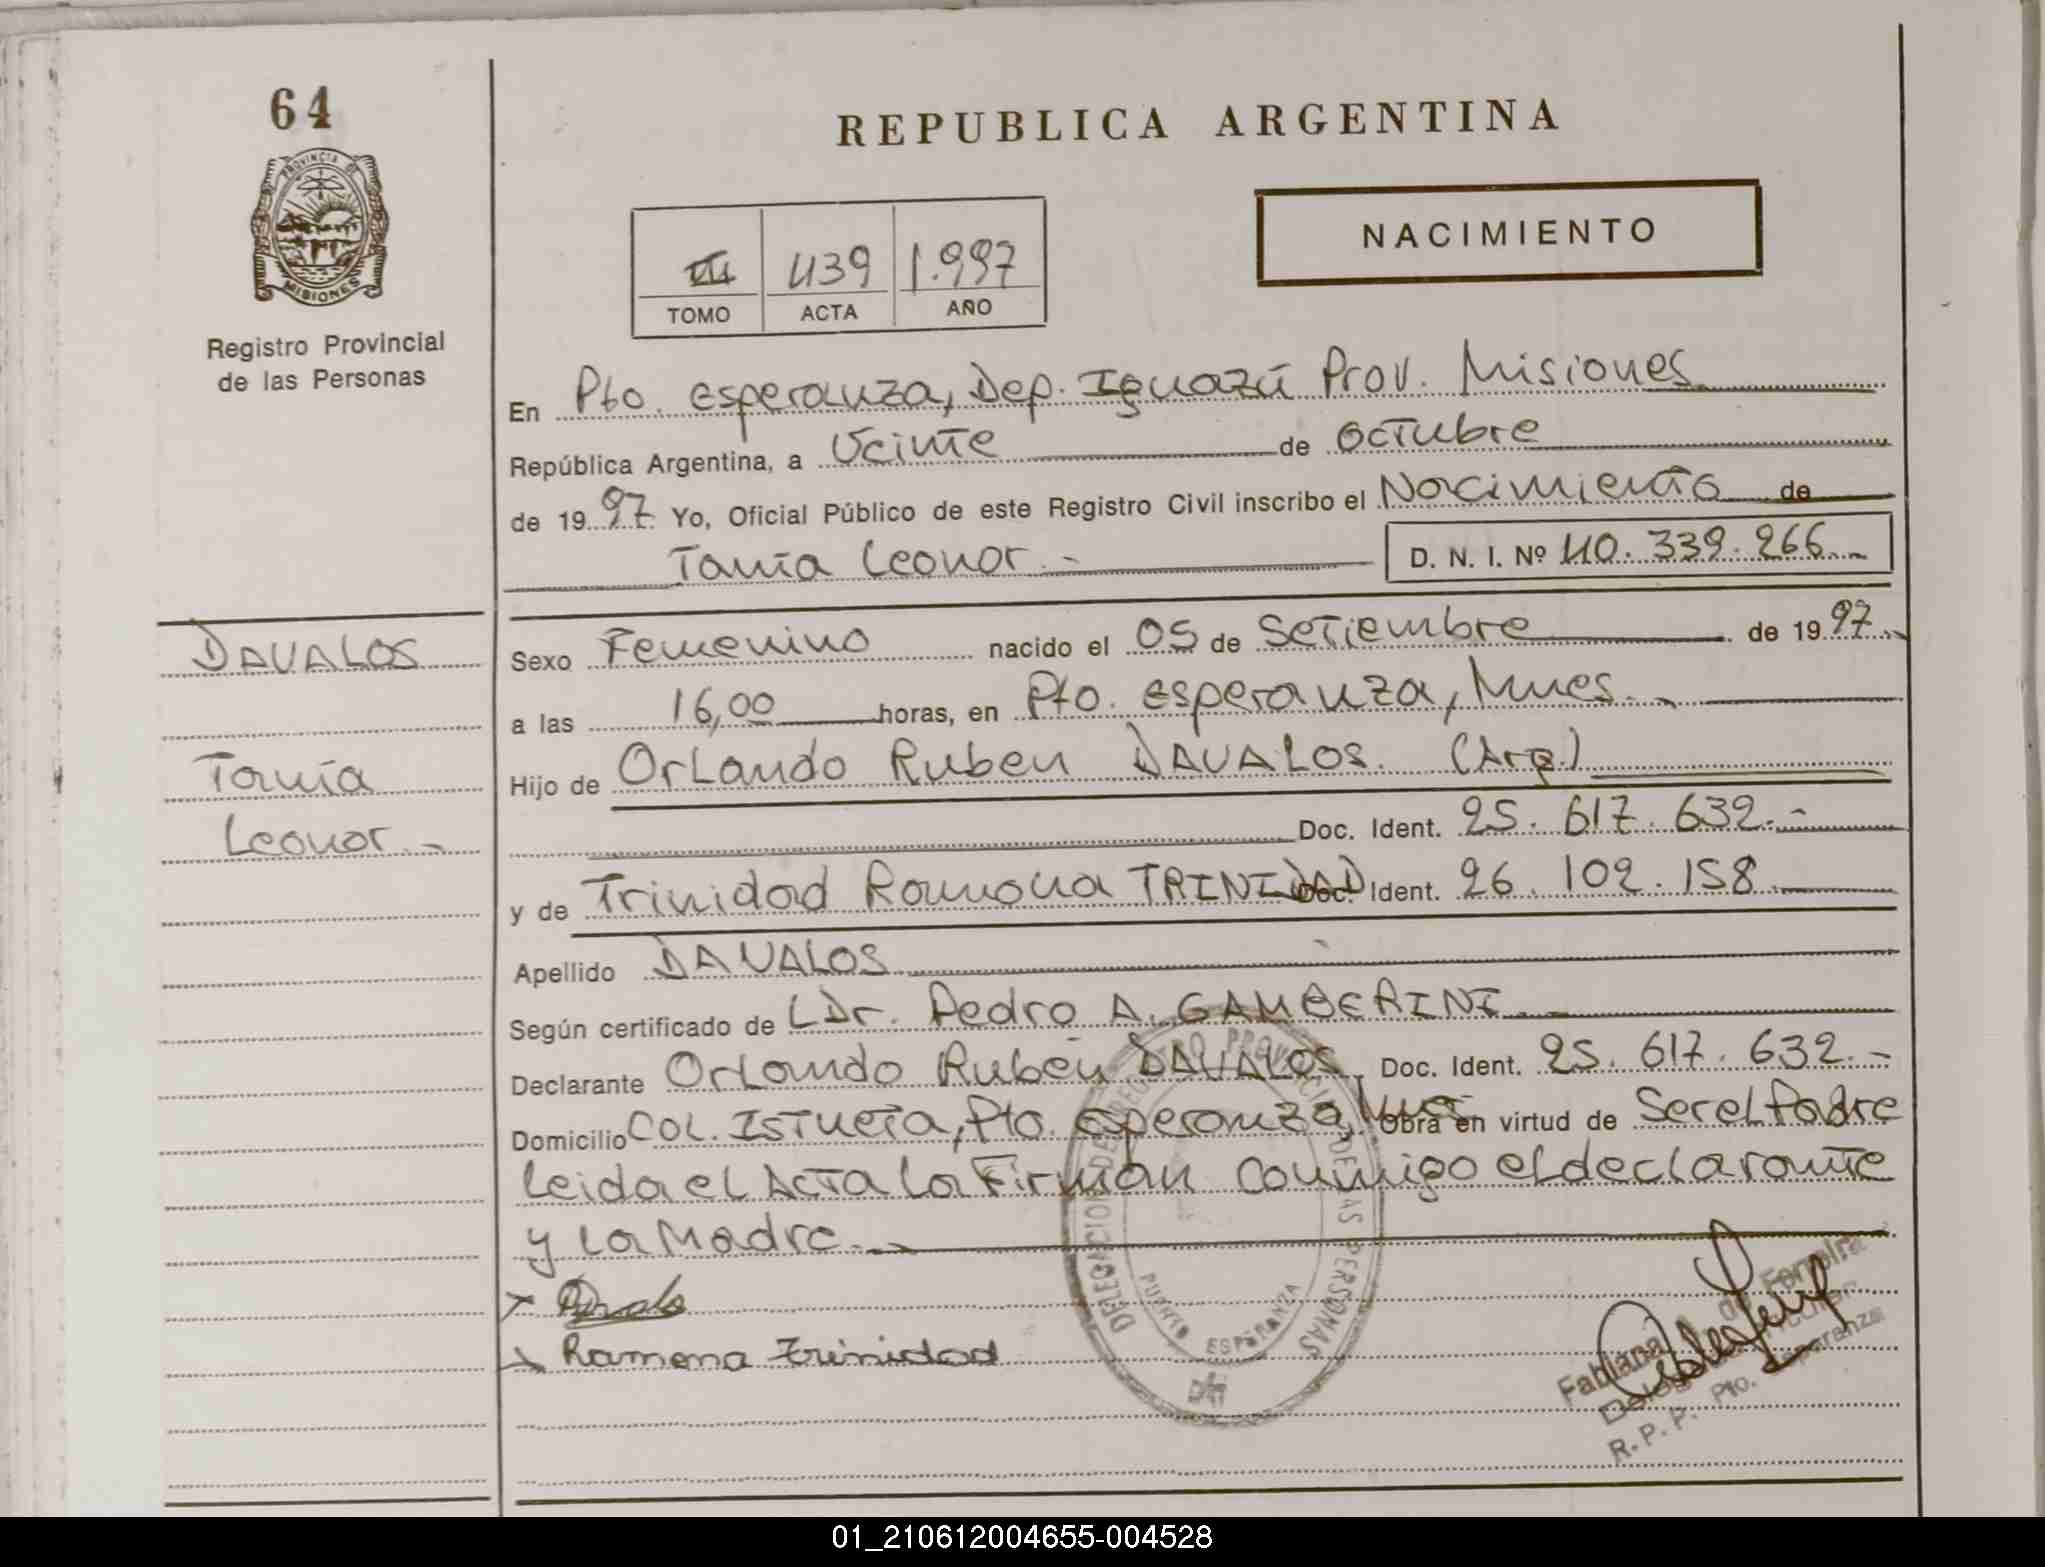 64
PROVINCIA DE
MISIONES
Registro Provincial
de las Personas
REPUBLICA ARGENTINA
NACIMIENTO
III 439 1.997
TOMO ACTA AÑO
En Pto. Esperanza, Dep. Iguazú Prov. Misiones
República Argentina, a Veinte de Octubre
de 1997. Yo, Oficial Público de este Registro Civil inscribo el Nacimiento de
Tania Leonor.- D. N. I. Nº 40.339.266.-
DAVALOS
Tania
Leonor.-
Sexo Femenino nacido el 05 de Setiembre de 1997.-
a las 16,00 horas, en Pto. Esperanza, Mnes.-
Hijo de Orlando Ruben DAVALOS. (Arg.)
Doc. Ident. 25.617.632.-
y de Trinidad Ramona TRINIDAD Doc. Ident. 26.102.158.
Apellido DAVALOS
Según certificado de LDr. Pedro A. GAMBERINI.-
Declarante Orlando Rubén DAVALOS, Doc. Ident. 25.617.632.-
Domicilio COL. ISTUETA, Pto. Esperanza, Mnes Obra en virtud de Ser el Padre
Leida el Acta La Firman Conmigo el declarante
y La Madre.-
Ramona Trinidad
DELEGACION DE REGISTRO PROVINCIAL DE LAS PERSONAS
PUERTO ESPERANZA
Fabiana de Ferreira
R. P. P. Pto. Esperanza
01_210612004655-004528